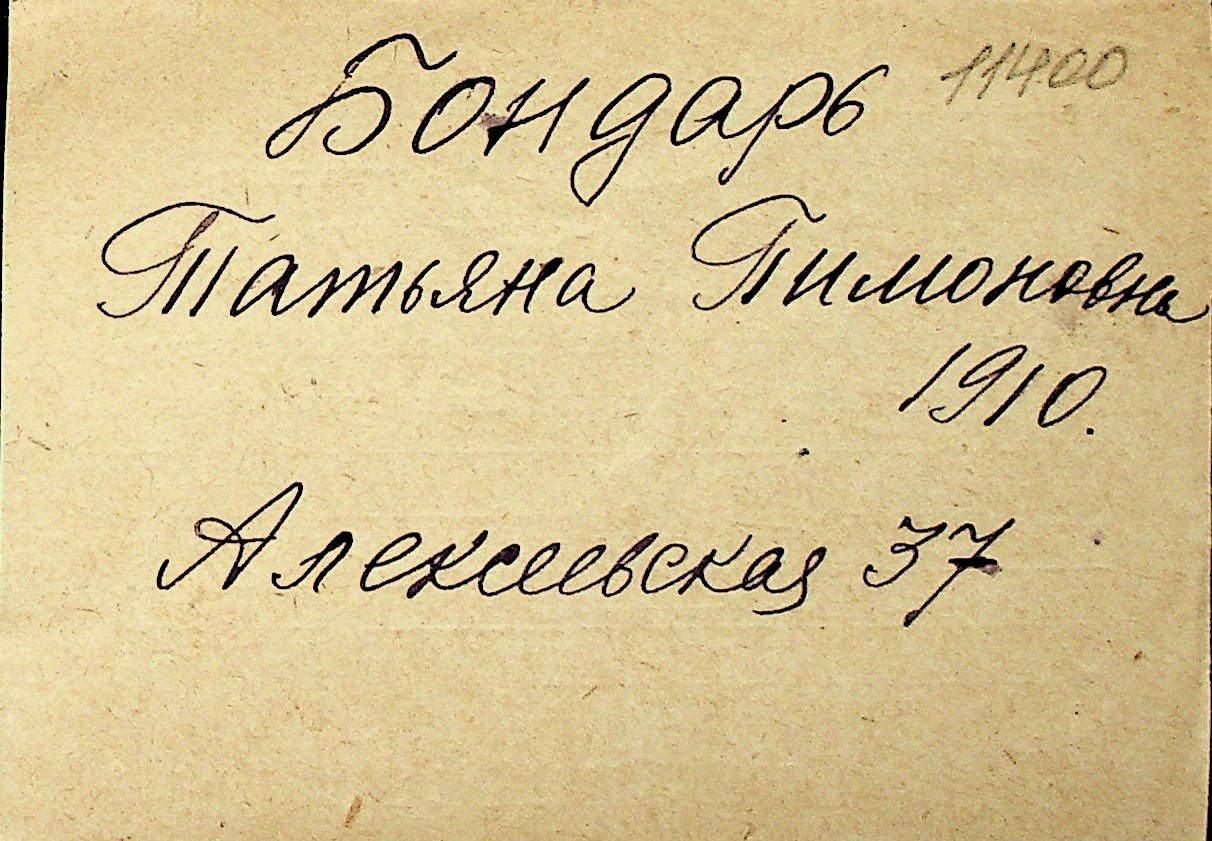 Бондарь 11400
Татьяна Тимоновна
1910.
Алексеевская 37